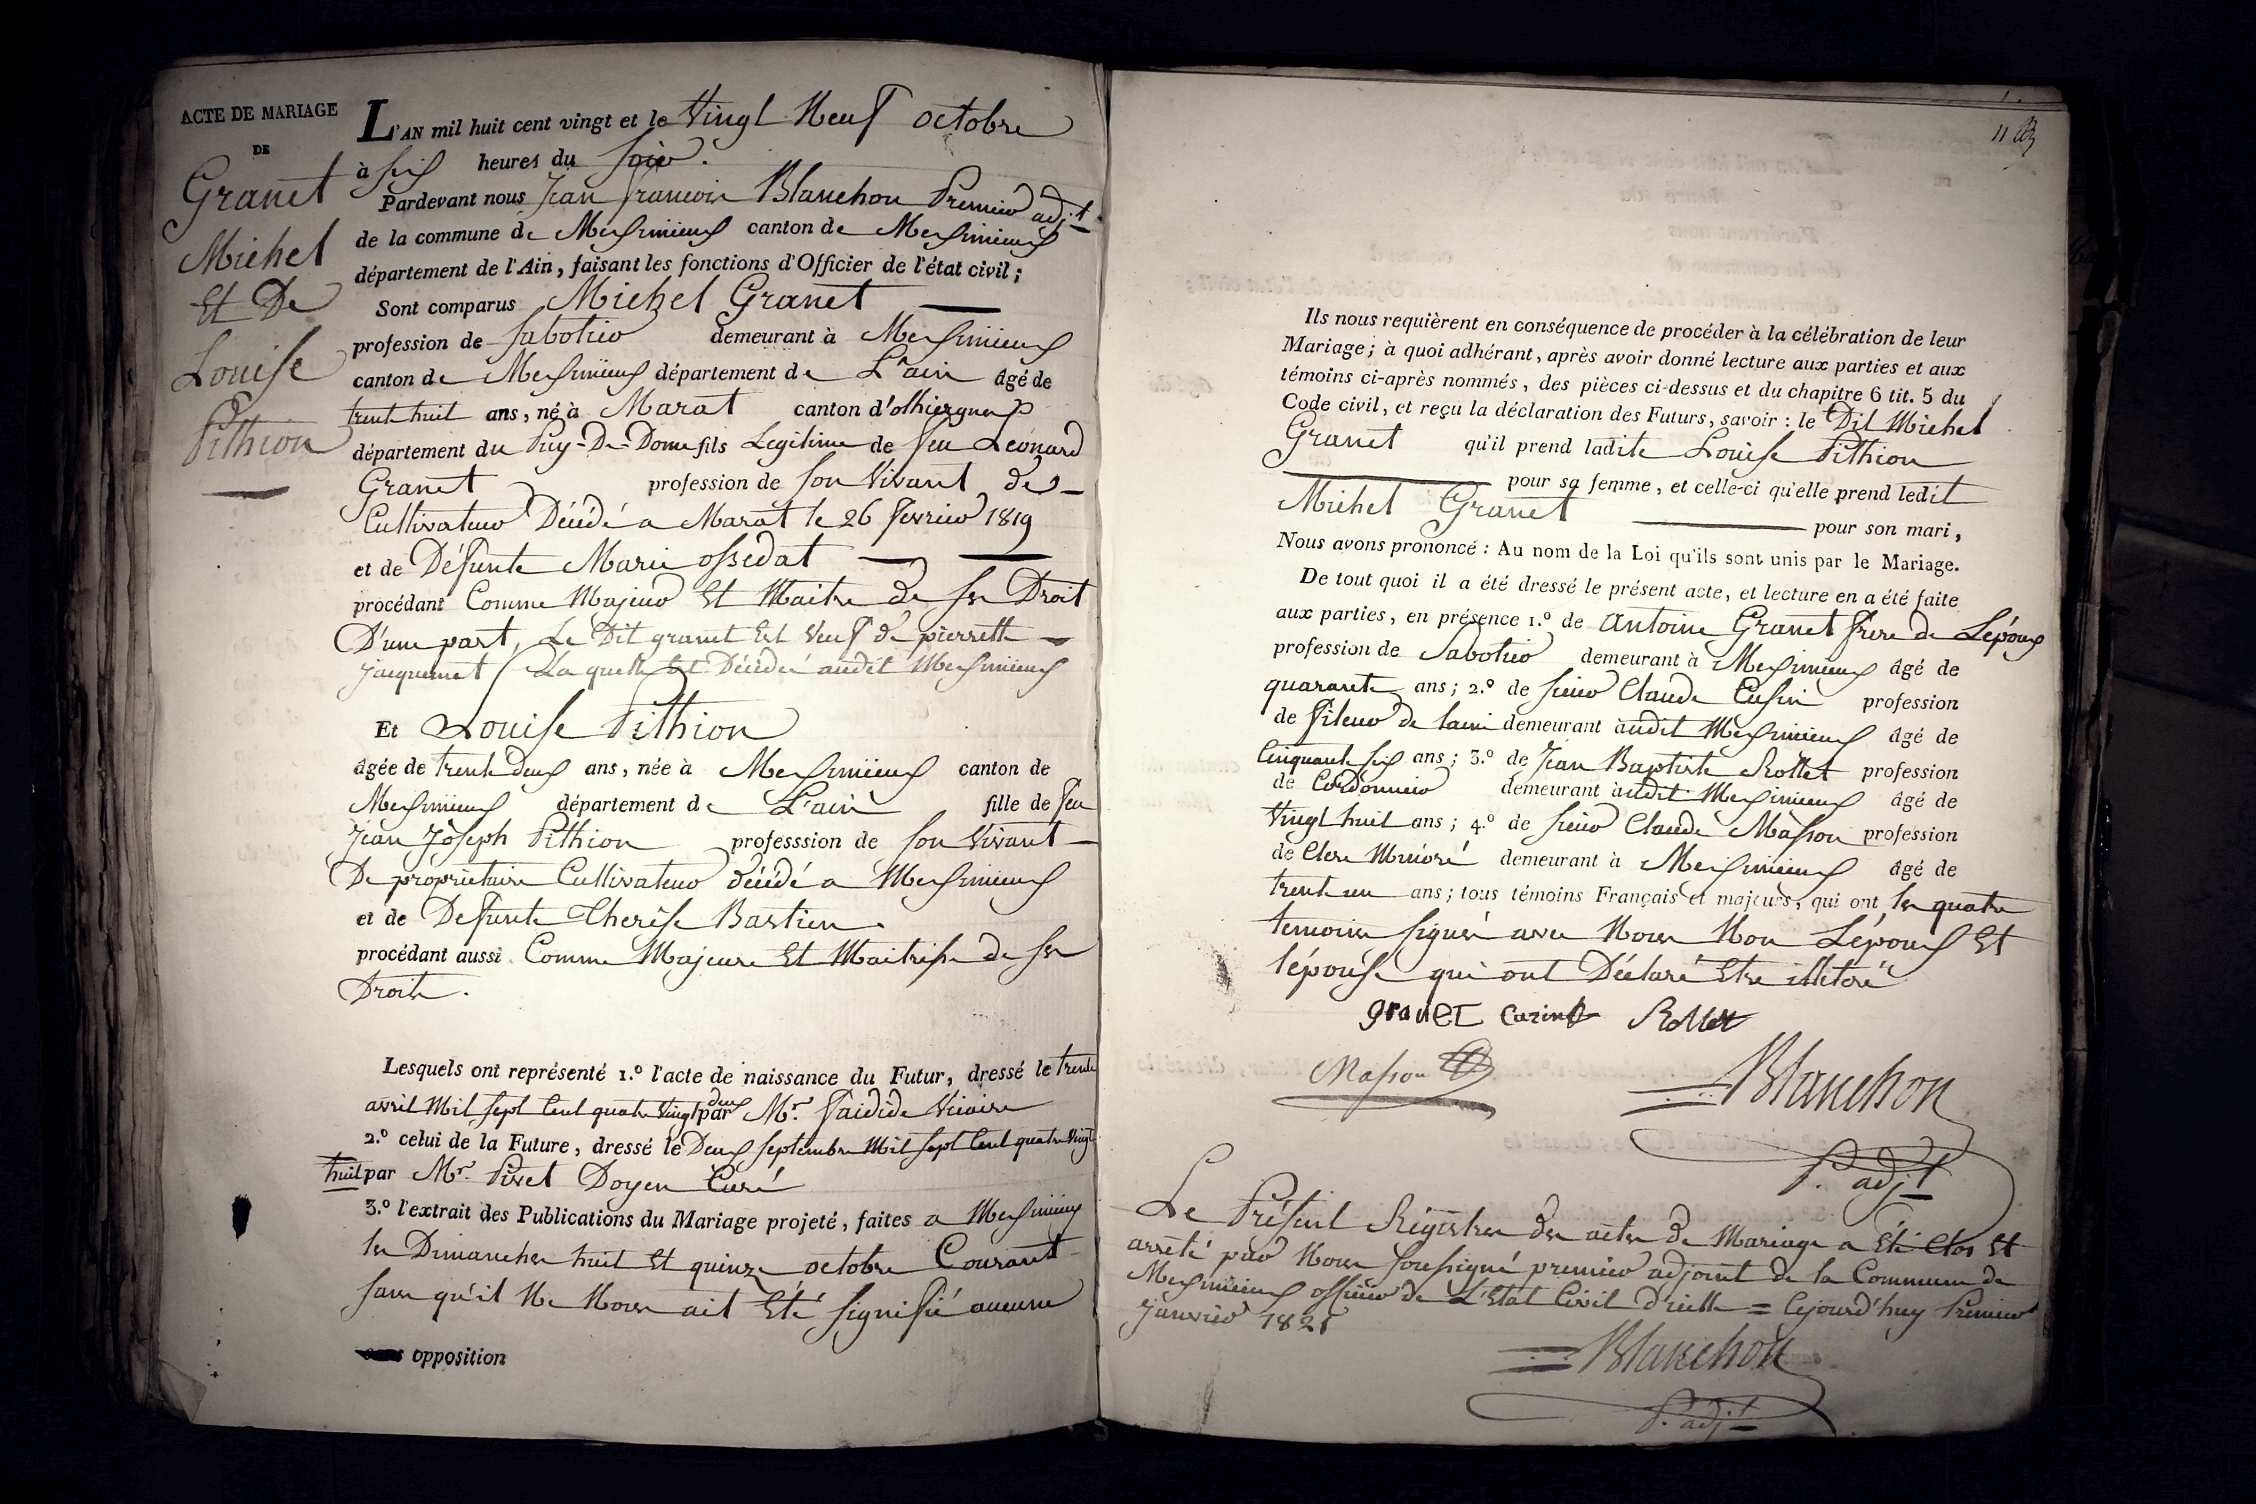 ACTE DE MARIAGE
DE
Granet
Michel
Et De
Louise
Pithion
L'AN mil huit cent vingt et le Vingt Neuf octobre
à six heures du soir.
Pardevant nous Jean francois Blanchon Premier adj.t
de la commune de Meximieux canton de Meximieux
département de l'Ain, faisant les fonctions d'Officier de l'état civil;
Sont comparus Michel Granet
profession de Sabotier demeurant à Meximieux
canton de Meximieux département de L'ain âgé de
trente huit ans, né à Marat canton d'olliergues
département du Puy-De-Dome fils Legitime de feu Léonard
Granet profession de son Vivant de
Cultivateur Décédé a Marat le 26 fevrier 1819
et de Défunte Marie ossedat
procédant Comme Majeur Et Maitre de ses Droit
D'une part, Le Dit granet Est Veuf de pierrette
jacquemet Laquelle est Décédé audit Meximieux
Et Louise Pithion
âgée de trente deux ans, née à Meximieux canton de
Meximieux département de L'ain fille de feu
Jean Joseph Pithion professsion de son Vivant
De proprietaire Cultivateur décédé a Meximieux
et de Defunte Therèse Bastien.
procédant aussi Comme Majeure Et Maitresse de ses
Droits.
Lesquels ont représenté 1.º l'acte de naissance du Futur, dressé le trente
avril Mil sept Cent quatre Vingt deux par M.r faidide Vicaire
2.º celui de la Future, dressé le Deux septembre Mil sept Cent quatre Vingt
huit par M.r Pivet Doyen Curé
3.º l'extrait des Publications du Mariage projeté, faites a Meximieux
les Dimanches huit Et quinze octobre Courant
sans qu'il Ne Nous ait Eté signifié aucune
opposition
11
Ils nous requièrent en conséquence de procéder à la célébration de leur
Mariage; à quoi adhérant, après avoir donné lecture aux parties et aux
témoins ci-après nommés, des pièces ci-dessus et du chapitre 6 tit. 5 du
Code civil, et reçu la déclaration des Futurs, savoir : le Dit Michel
Granet qu'il prend ladite Louise Pithion
pour sa femme, et celle-ci qu'elle prend ledit
Michel Granet pour son mari,
Nous avons prononcé : Au nom de la Loi qu'ils sont unis par le Mariage.
De tout quoi il a été dressé le présent acte, et lecture en a été faite
aux parties, en présence 1.º de Antoine Granet frere de L'époux
profession de Sabotier demeurant à Meximieux âgé de
quarante ans; 2.º de sieur Claude Cusin profession
de fileur de laine demeurant audit Meximieux âgé de
Cinquante six ans; 3.º de Jean Baptiste Rollet profession
de Cordonnier demeurant audit Meximieux âgé de
Vingt huit ans; 4.º de sieur Claude Masson profession
de Clerc demeurant à Meximieux âgé de
trente un ans; tous témoins Français et majeurs, qui ont les quatre
temoins signés avec Nous Non L'époux Et
l'épouse qui ont Déclaré Etre illitéré
granet Cuzin Rollet
Masson
Blanchon
P. adj.t
Le Présent Régistre des actes de Mariage a Eté Clos Et
arreté par Nous soussigné premier adjoint de la Commune de
Meximieux officier de L'Etat Civil D'icelle = Cejourd'huy Premier
janvier 1821
Blanchon
P. adj.t